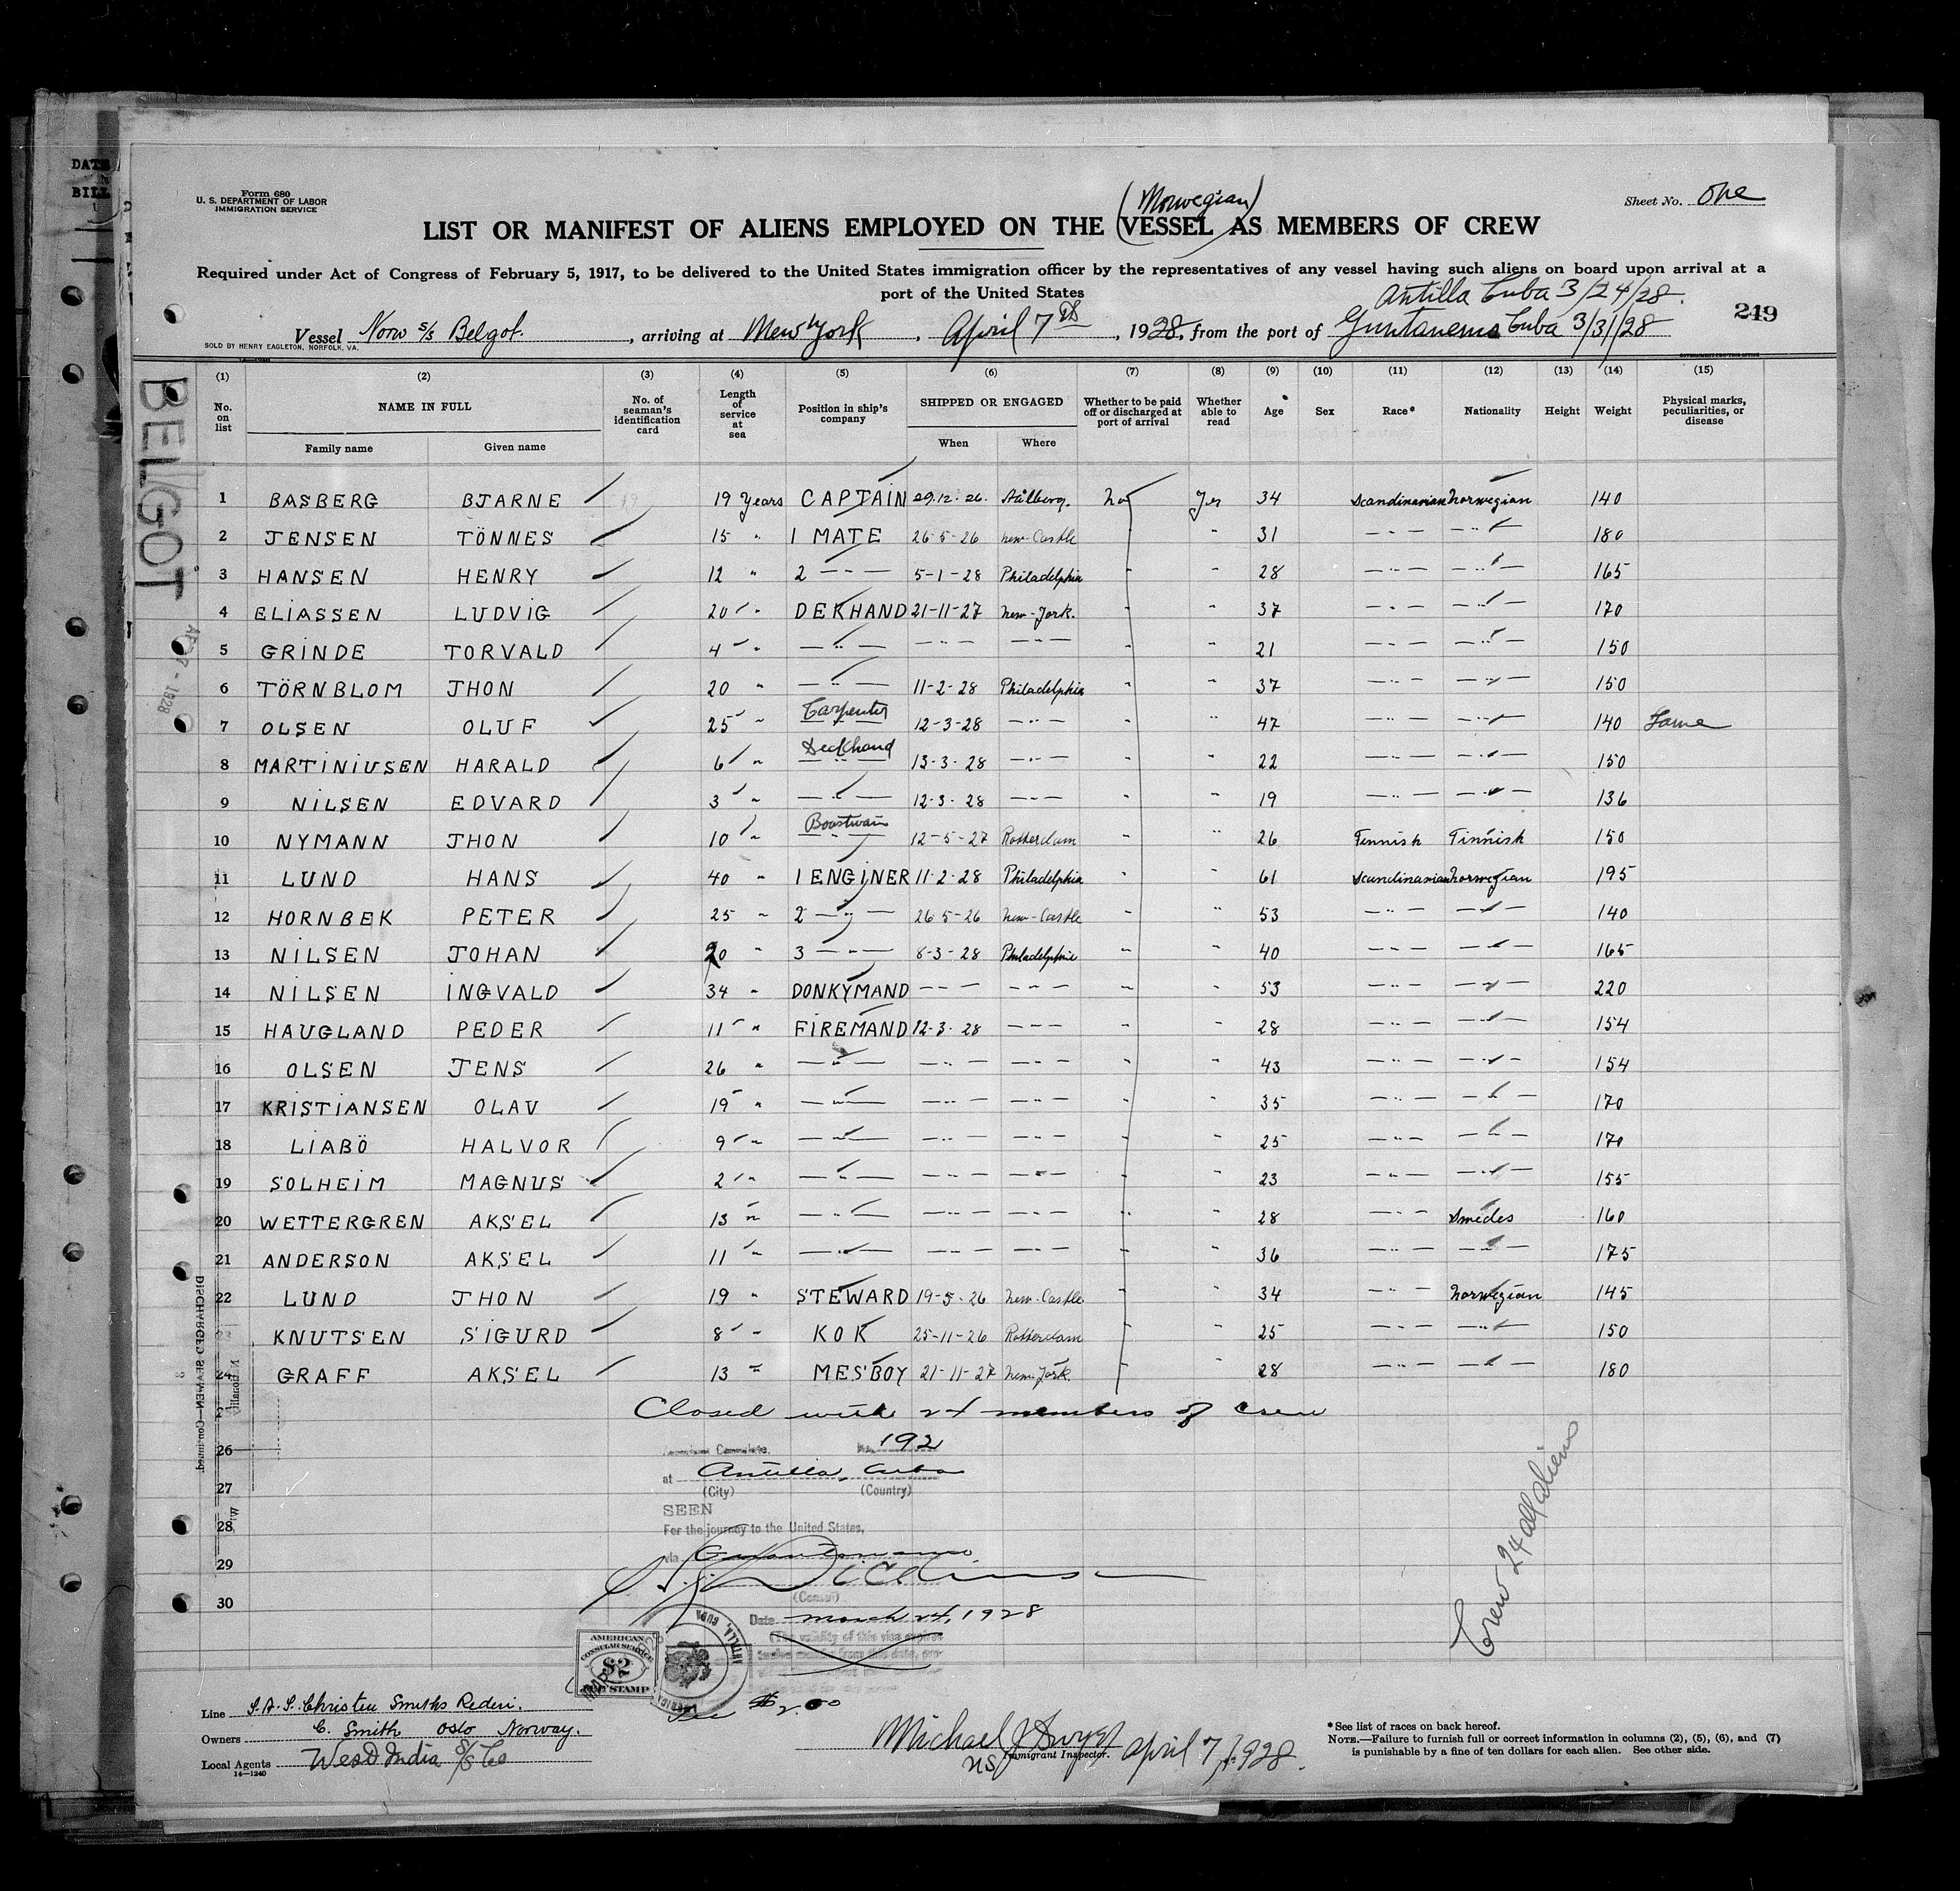 DATE
BILL
Form 680
U. S. DEPARTMENT OF LABOR
IMMIGRATION SERVICE
Sheet No. One
(Norwegian)
LIST OR MANIFEST OF ALIENS EMPLOYED ON THE VESSEL AS MEMBERS OF CREW
Required under Act of Congress of February 5, 1917, to be delivered to the United States immigration officer by the representatives of any vessel having such aliens on board upon arrival at a
port of the United States
Antilla Cuba 3/24/28.
249
Vessel Norw S/S Belgot. , arriving at New York , April 7th , 1928, from the port of Guntanemo Cuba 3/31/28
SOLD BY HENRY EAGLETON, NORFOLK, VA.
BELGOT
(1) (2) (3) (4) (5) (6) (7) (8) (9) (10) (11) (12) (13) (14) (15)
No. on list NAME IN FULL No. of seaman's identification card Length of service at sea Position in ship's company SHIPPED OR ENGAGED Whether to be paid off or discharged at port of arrival Whether able to read Age Sex Race* Nationality Height Weight Physical marks, peculiarities, or disease
Family name Given name When Where
1 BASBERG BJARNE 19 Years CAPTAIN 29.12.26. No Yes 34 Scandinavian Norwegian 140
2 JENSEN TÖNNES 15 " 1 MATE 26-5-26 New-Castle " " 31 — " — — " — 180
3 HANSEN HENRY 12 " 2 — " — 5-1-28 Philadelphia " " 28 — " — — " — 165
4 ELIASSEN LUDVIG 20 " DEKHAND 21-11-27 New-York. " " 37 — " — — " — 170
5 GRINDE TORVALD 4 " — " — — " — — " — " " 21 — " — — " — 150
6 TÖRNBLOM JHON 20 " — " — 11-2-28 Philadelphia " " 37 — " — — " — 150
7 OLSEN OLUF 25 " Carpenter 12-3-28 — " — " " 47 — " — — " — 140 Lame
8 MARTINIUSEN HARALD 6 " Deckhand 13-3-28 — " — " " 22 — " — — " — 150
9 NILSEN EDVARD 3 " — " — 12-3-28 — " — " " 19 — " — — " — 136
10 NYMANN JHON 10 " Boastwain 12-5-27 Rotterdam " " 26 Finnish Finnish 150
11 LUND HANS 40 " 1 ENGINER 11-2-28 Philadelphia " " 61 Scandinavian Norwegian 195
12 HORNBEK PETER 25 " 2 — " — 26-5-26 New-Castle " " 53 — " — — " — 140
13 NILSEN JOHAN 20 " 3 — " — 8-3-28 Philadelphia " " 40 — " — — " — 165
14 NILSEN INGVALD 34 " DONKYMAND — " — — " — " " 53 — " — — " — 220
15 HAUGLAND PEDER 11 " FIREMAND 12-3-28 — " — " " 28 — " — — " — 154
16 OLSEN JENS 26 " — " — — " — — " — " " 43 — " — — " — 154
17 KRISTIANSEN OLAV 19 " — " — — " — — " — " " 35 — " — — " — 170
18 LIABÖ HALVOR 9 " — " — — " — — " — " " 25 — " — — " — 170
19 SOLHEIM MAGNUS 2 " — " — — " — — " — " " 23 — " — — " — 155
20 WETTERGREN AKSEL 13 " — " — — " — — " — " " 28 — " — Swedes 160
21 ANDERSON AKSEL 11 " — " — — " — — " — " " 36 — " — — " — 175
22 LUND JHON 19 " STEWARD 19-5-26 New-Castle " " 34 — " — Norwegian 145
23 KNUTSEN SIGURD 8 " KOK 25-11-26 Rotterdam " " 25 — " — — " — 150
24 GRAFF AKSEL 13 " MESBOY 21-11-27 New-York " " 28 — " — — " — 180
Closed with 24 members of crew
26
No. 192
at Antilla, Cuba
27
(City) (Country)
SEEN
28
For the journey to the United States,
via Guantanamo
29
(Consul)
30
Date March 24, 1928
(The validity of this visa expires
Crew 24 all aliens
AMERICAN
CONSULAR SERVICE
$2
FEE STAMP
ANTILLA, CUBA
Fee $2.00
Line S.A.S. Christen Smiths Rederi.
Owners C. Smith Oslo Norway.
Local Agents West India S/S Co
14—1240
Michael J Dwyer
Immigrant Inspector. April 7, 1928.
*See list of races on back hereof.
NOTE.—Failure to furnish full or correct information in columns (2), (5), (6), and (7)
is punishable by a fine of ten dollars for each alien. See other side.